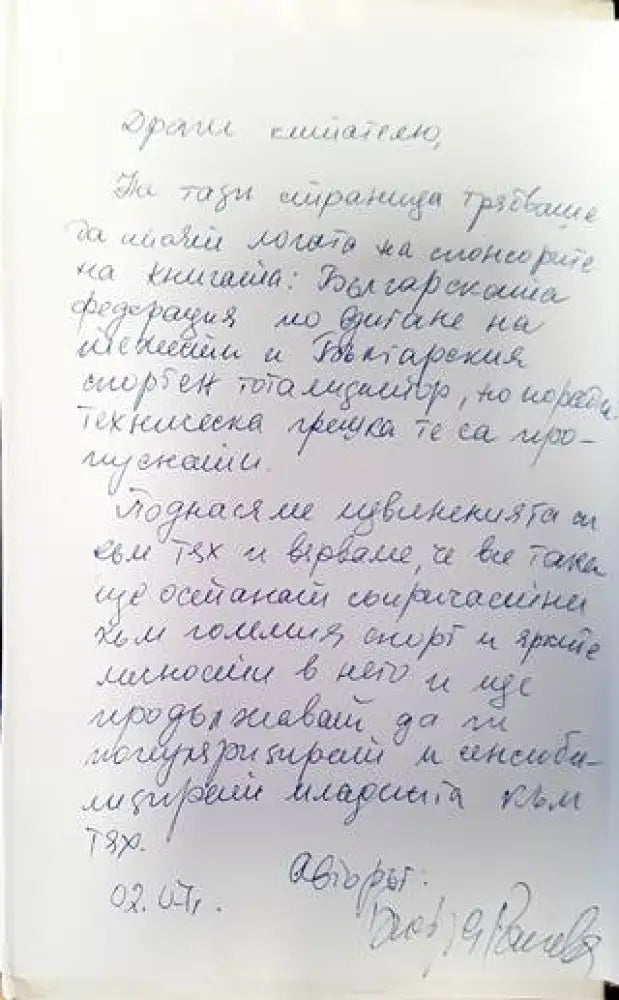 Драги читателю,
На тази страница трябваше
да стоят логата на спонсорите
на книгата: Българската
федерация по вдигане на
тежести и Българския
спортен тотализатор, но поради
техническа грешка те са про-
пуснати.
Поднасяме извиненията си
към тях и вярваме, че все така
ще останат съпричастни
към големия спорт и ярките
личности в него и ще
продължават да ги
популяризират и сенсиби-
лизират младината към
тях.
Авторът:
02.07г.